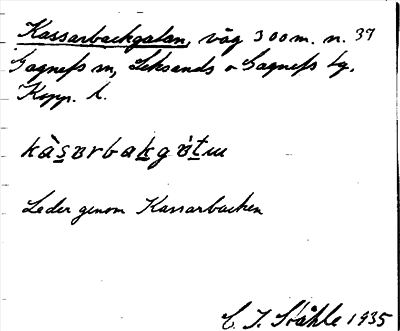 Kassarbackgatan, väg 300 m. n. 37
Gagnefs sn, Leksands o Gagnefs tg.
Kopp. l.
kàs̠ɐrbak̠gɷ̀t̠ɯ
Leder genom Kassarbacken
C. I. Ståhle 1935